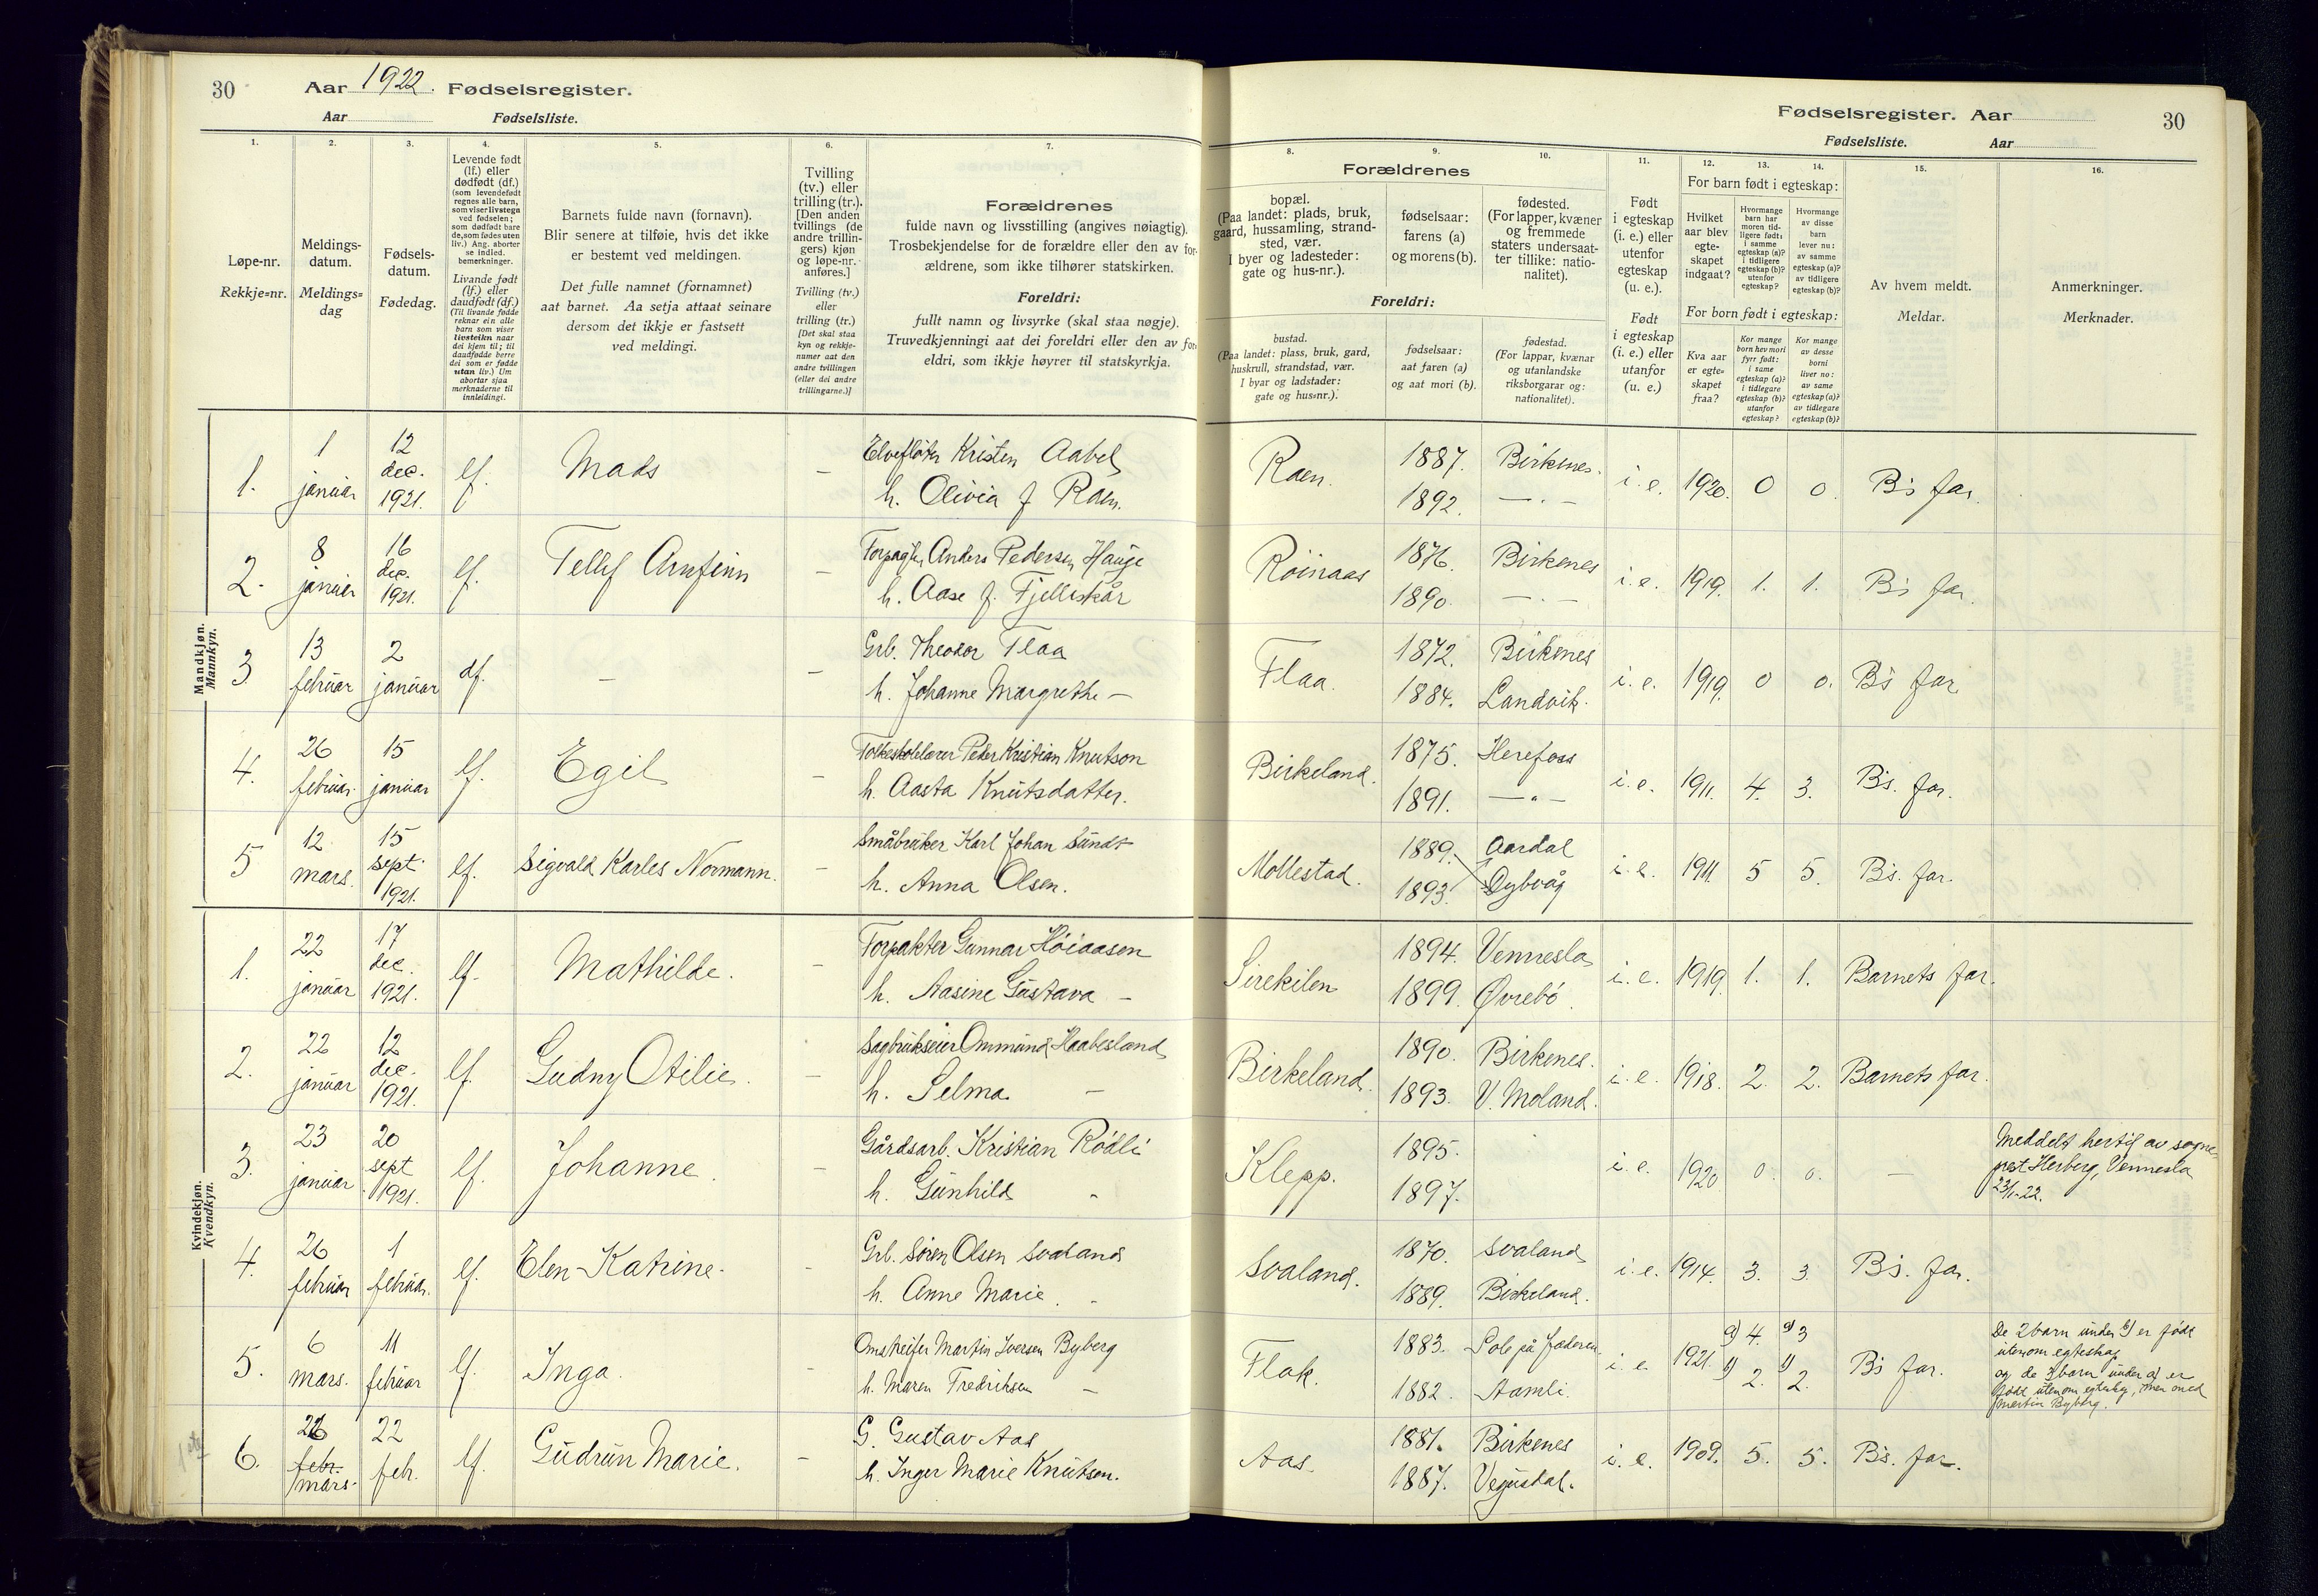 30 Aar 1922. Fødselsregister.
Aar Fødselsliste.
Fødselsregister. Aar 30
Fødselsliste. Aar
1. 2. 3. 4. 5. 6. 7.
Løpe-nr.
Rekkje=nr.
Meldings-
datum.
Meldings=
dag
Fødsels-
datum.
Fødedag.
Levende født
(lf.) eller
dødfødt (df.)
(som levendefødt
regnes alle barn,
som viser livstegn
ved fødselen;
som dødfødt bare
de, som fødes uten
liv.) Ang. aborter
se indled.
bemerkninger.
Livande født
(lf.) eller
daudfødt (df.)
(Til livande fødde
reknar ein alle
barn som viser
livsteikn naar
dei kjem til; til
daudfødde berre
dei som er fødde
utan liv.) Um
abortar sjaa
merknaderne til
innleidingi.
Barnets fulde navn (fornavn).
Blir senere at tilføie, hvis det ikke
er bestemt ved meldingen.
Det fulle namnet (fornamnet)
aat barnet. Aa setja attaat seinare
dersom det ikkje er fastsett
ved meldingi.
Tvilling
(tv.) eller
trilling (tr.).
[Den anden
tvillings (de
andre trillin-
gers) kjøn
og løpe-nr.
anføres.]
Tvilling (tv.)
eller
trilling (tr.)
[Det skal staa
kyn og rekkje-
numer aat den
andre tvillingen
(eller dei andre
trillingarne.)]
Forældrenes
fulde navn og livsstilling (angives nøiagtig).
Trosbekjendelse for de forældre eller den av for-
ældrene, som ikke tilhører statskirken.
Foreldri:
fullt namn og livsyrke (skal staa nøgje).
Truvedkjenningi aat dei foreldri eller den av for-
eldri, som ikkje høyrer til statskyrkja.
8. 9. 10. 11. 12. 13. 14. 15. 16.
Forældrenes
bopæl.
(Paa landet: plads, bruk,
gaard, hussamling, strand-
sted, vær.
I byer og ladesteder:
gate og hus-nr.).
fødselsaar:
farens (a)
og morens (b).
fødested.
(For lapper, kvæner
og fremmede
staters undersaat-
ter tillike: natio-
nalitet).
Foreldri:
bustad.
(Paa landet: plass, bruk, gard,
huskrull, strandstad, vær.
I byar og ladstader:
gate og hus=nr.).
fødselsaar:
aat faren (a)
og aat mori (b).
fødestad.
(For lappar, kvænar
og utanlandske
riksborgarar og:
nationalitet).
Født
i egteskap
(i. e.) eller
utenfor
egteskap
(u. e.).
Født
i egteskap
(i. e.) eller
utanfor
(u. e.)
For barn født i egteskap:
Hvilket
aar blev
egte-
skapet
indgaat?
Hvormange
barn har
moren tid-
ligere født:
i samme
egteskap (a)?
i tidligere
egteskap (b)?
utenfor
egteskap?
Hvormange
av disse
barn
lever nu:
av samme
egteskap (a)?
av tidligere
egteskap (b)?
For born født i egteskap:
Kva aar
er egte=
skapet
fraa?
Kor mange
born hev mori
fyrr født:
i same
egteskap (a)?
i tidlegare
egteskap (b)?
utanfor
egteskap?
Kor mange
av desse
borni
liver no:
av same
egteskap (a)?
av tidlegare
egteskap (b)?
Av hvem meldt.
Meldar.
Anmerkninger.
Merknader.
Mandkjøn.
Mannkyn.
1. 1 januar 12 dec. 1921. lf. Mads — Elvefløter Kristen Aabel
h. Olivia f Raen.
Raen. 1887. Birkenes. i. e. 1920. 0 0. B's far.
1892. — . —
2. 8 januar 16 dec. 1921. lf. Tellef Arnfinn — Forpagter Anders Pedersen Hauge
h. Aase f. Fjelleskår
Röinaas 1876. Birkenes i. e. 1919. 1. 1. B's far.
1890. — . —
3 13 februar 2 januar df. — — Grb. Theodor Flaa
h. Johanne Margrethe —
Flaa. 1872. Birkenes i. e. 1919. 0 0. B's far
1884. Landvik.
4. 26 februar. 15 januar lf. Egil — Folkeskolelærer Peder Kristian Knutson
h. Aasta Knutsdatter.
Birkeland. 1875. Herefoss i. e. 1911. 4. 3. B's. far.
1891. — " —
5 12 mars. 15 sept. 1921. lf. Sigvald Karles Normann. — Småbruker Karl Johan Sundt
h. Anna Olsen.
Mollestad. 1889. Aardal i. e. 1911. 5 5. B's. far.
1893. Dybvåg
Kvindekjøn.
Kvendkyn.
1. 22 januar 17 dec. 1921. lf. Mathilde. — Forpakter Gunnar Höiaasen
h. Aasine Gustava —
Sirekilen 1894. Vennesla i. e. 1919. 1. 1. Barnets far.
1899. Øvrebö.
2. 22 januar 12 dec. 1921. lf. Gudny Otilie. — Sagbrukseier Ommund Haabesland
h. Selma —
Birkeland. 1890. Birkenes. i. e. 1918. 2. 2. Barnets far.
1893. V. Moland.
3. 23 januar 20 sept 1921. lf. Johanne. — Gårdsarb. Kristian Rödli
h. Gunhild "
Klepp. 1895. i. e. 1920 0. 0. — Meddelt hertil av sogne-
1897. prest Herberg, Vennesla
23/1-22.
4. 26 februar 1 februar. lf. Elen Katrine. — Grb. Sören Olsen Svaland
h. Anne Marie. "
Svaland. 1870. Svaland i. e. 1914. 3. 3. B's. far.
1889. Birkeland.
5. 6 mars. 11 februar lf. Inga. Omstreifer Martin Iversen Byberg
h. Maren Fredriksen —
Flak. 1883. Sole på Jæderen. i. e. 1921. a) 4. a) 3 B's far.
1882. Aamli. b) 2. b) 2.
De 2 barn under b) er født
utenom egteskap
og de 3 barn under a) er
født utenom egteskap, men med
Martin Byberg.
6. 26 febr. mars. 22 febr. lf. Gudrun Marie. — G. Gustav Aas
h. Inger Marie Knutsen.
Aas. 1881. Birkenes i. e. 1909. 5. 5. B's. far.
1887. Vegusdal.